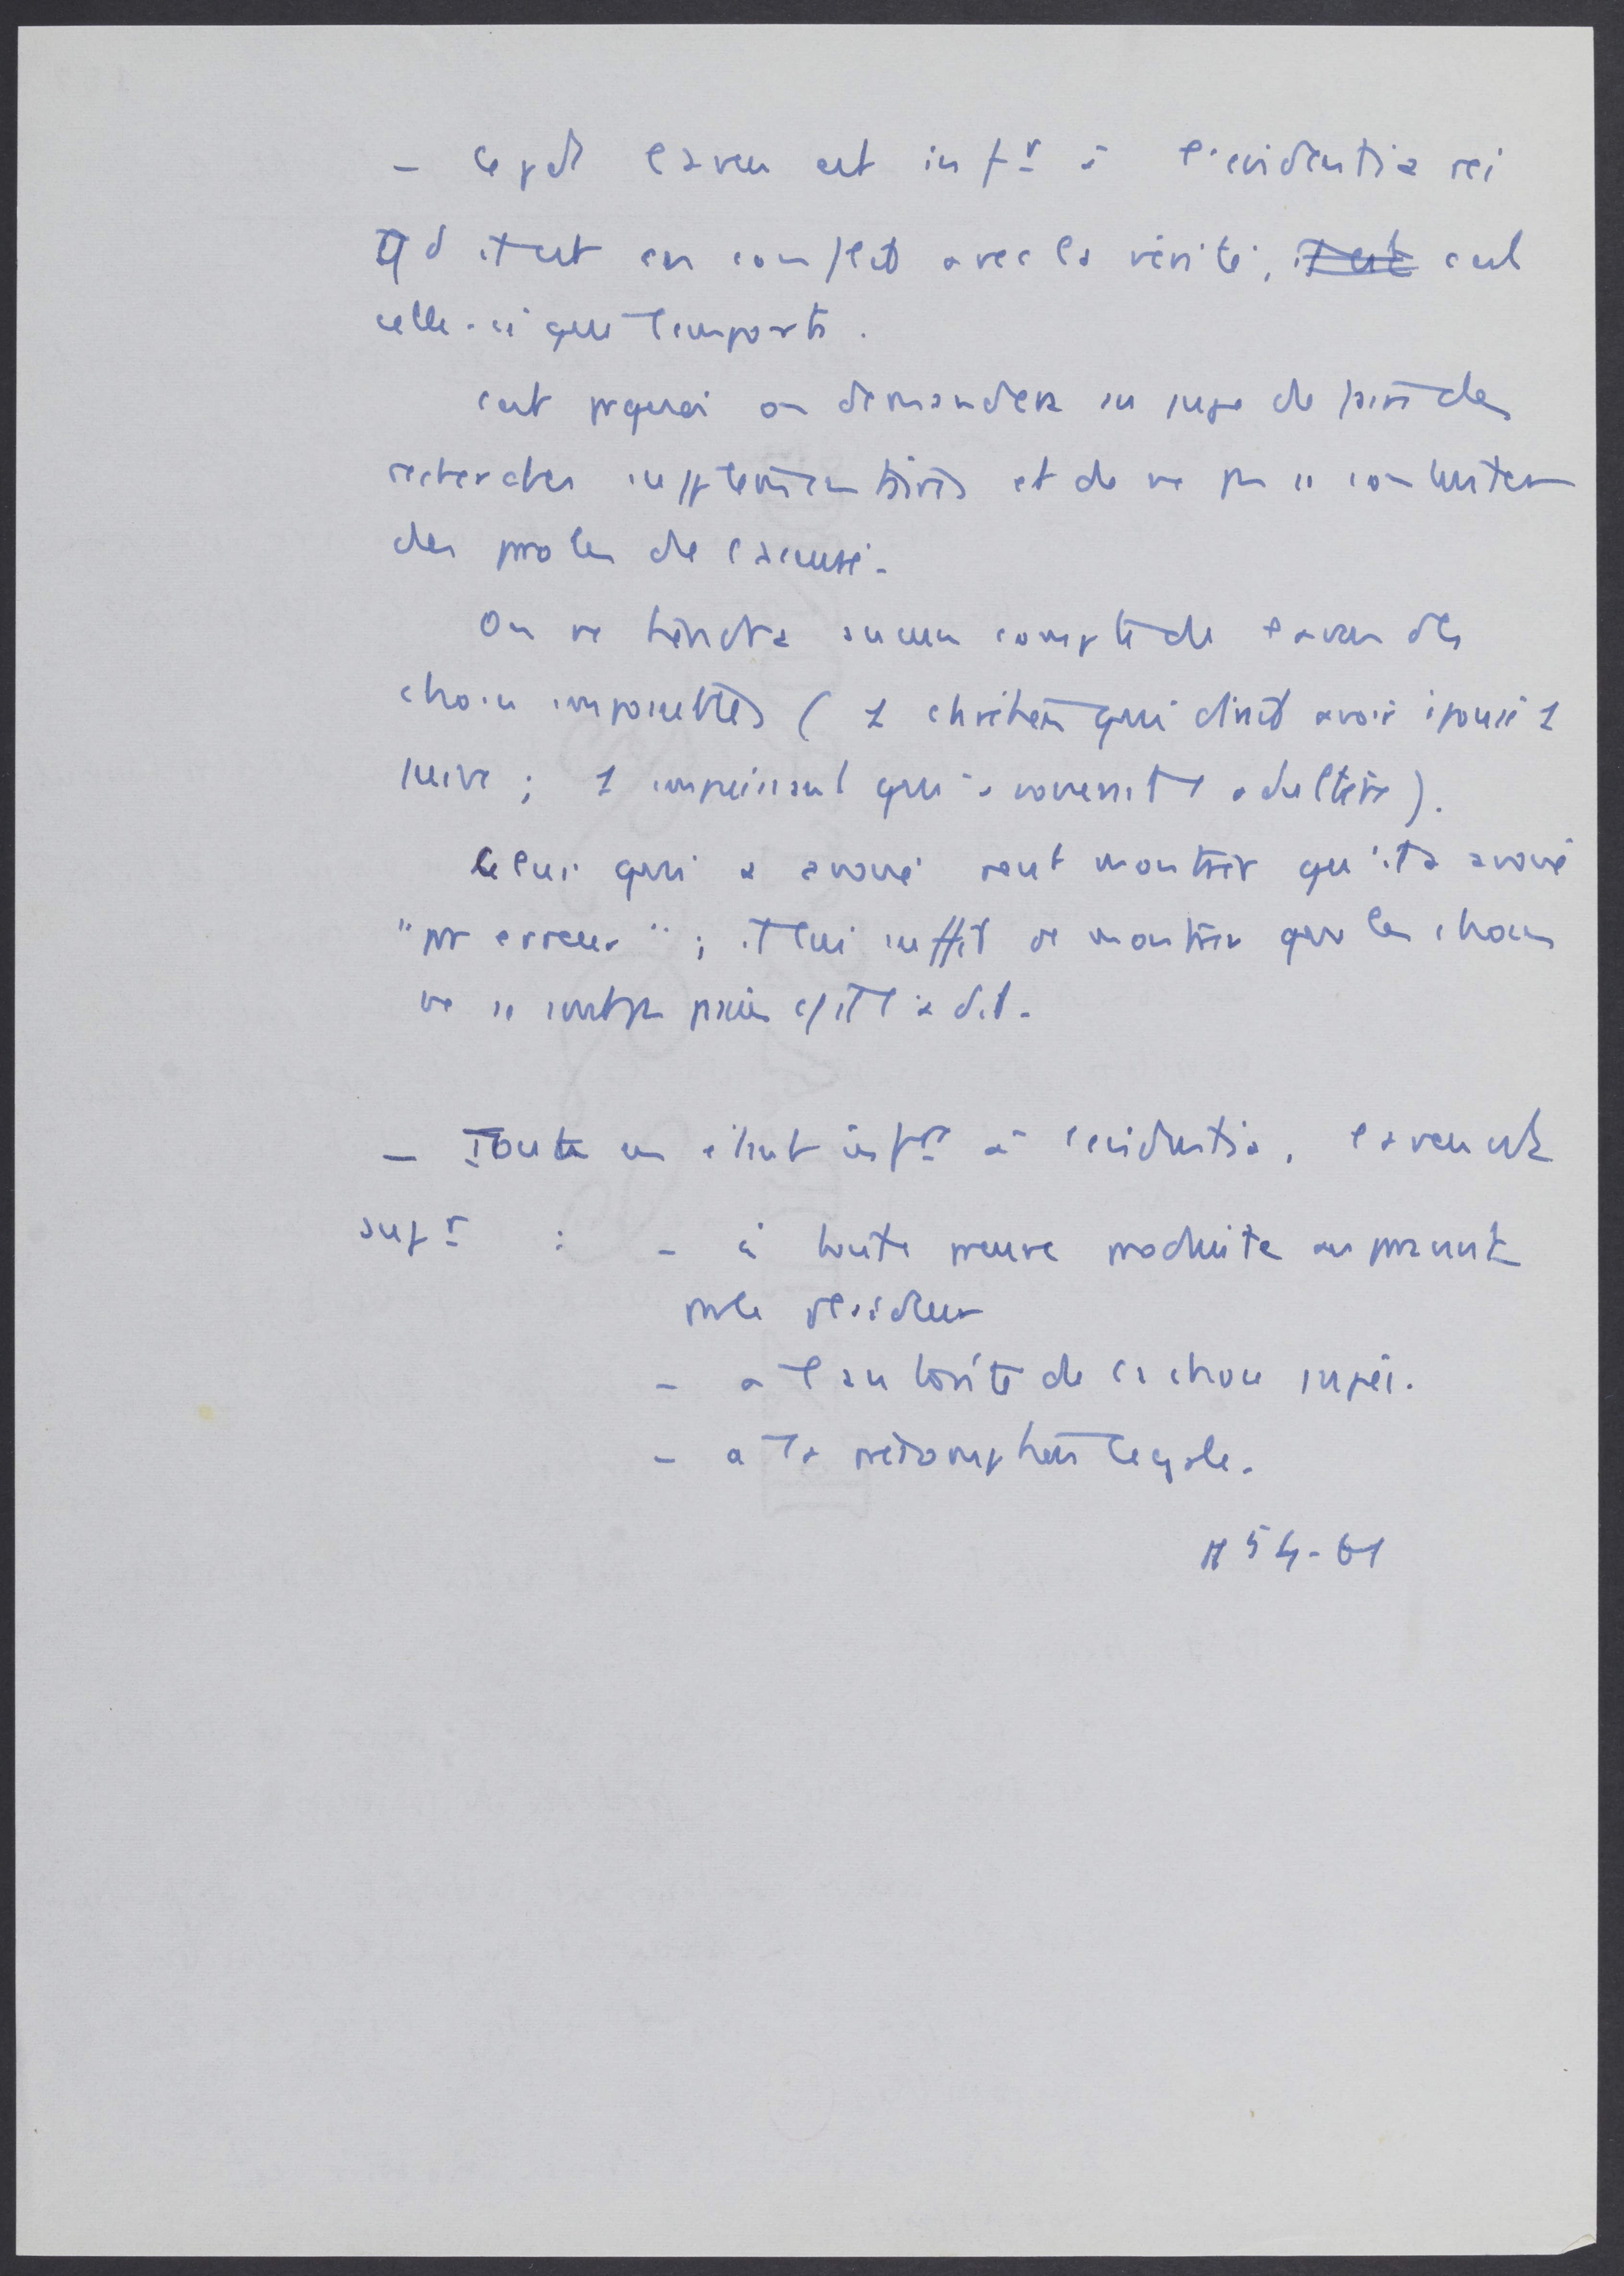 - Cepdt l'aveu est infr à l'evidentia rei
Qd il est en conflit avec la vérité, il est c'est
celle-ci qui l'emporte.
c'est pquoi on demandera au juge de faire des
recherches supplémentaires et de ne pas se contenter
des paroles de l'accusé.
On ne tiendra aucun compte de l'aveu des
choses impossibles ( 1 chrétien qui dirait avoir épousé 1
juive ; 1 impuissant qui avouerait 1 adultère).
Celui qui a avoué peut montrer qu'il a avoué
"pr erreur" ; il lui suffit de montrer que les choses
ne se sont pas passées c/ il l'a dit.
- Tout en étant infr à l'evidentia, l'aveu est
supr : - à toute preuve produite ou présente
par le plaideur
- à l'autorité de la chose jugée.
- à la présomption légale.
54-61